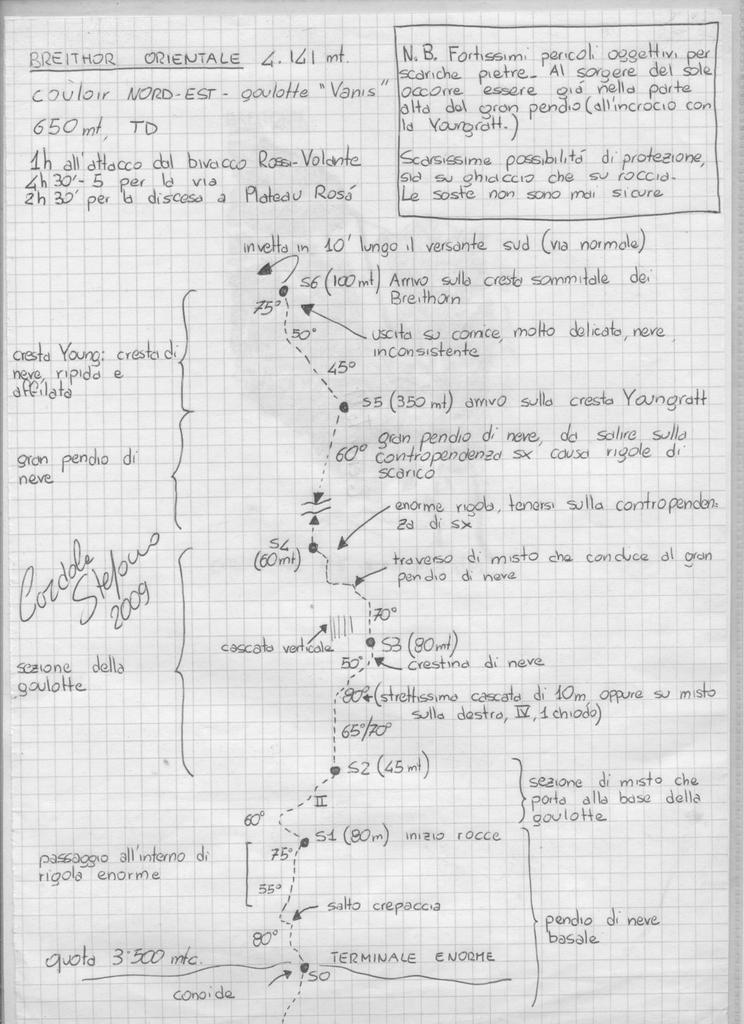 BREITHOR ORIENTALE 4.141 mt.
couloir NORD-EST - goulotte "Vanis"
650 mt, TD
1h all'attacco dal bivacco Rossi-Volante
4h 30'- 5 per la via
2h 30' per la discesa a Plateau Rosá
N.B. Fortissimi pericoli oggettivi per
scariche pietre. Al sorgere del sole
occorre essere giá nella parte
alta dal gran pendio (all'incrocio con
la Youngratt.)
Scarsissime possibilitá di protezione,
sia su ghiaccio che su roccia.
Le soste non sono mai sicure
invetta in 10' lungo il versante sud (via normale)
S6 (100mt) Arrivo sulla cresta sommitale dei
Breithorn
75°
50°
uscita su cornice, molto delicata, neve
inconsistente
45°
cresta Young: cresta di
neve, ripida e
affilata
S5 (350 mt) arrivo sulla cresta Youngratt
60° gran pendio di neve, da salire sulla
contropendenza sx causa rigole di
scarico
gran pendio di
neve
enorme rigola, tenersi sulla contropenden-
za di sx
S4
(60mt)
traverso di misto che conduce al gran
pendio di neve
Cordola
Stefano
2009
70°
cascata verticale
S3 (80mt)
50°
crestina di neve
sezione della
goulotte
80° (strettissima cascata di 10m oppure su misto
sulla destra, IV, 1 chiodo)
65°/70°
S2 (45 mt)
II
sezione di misto che
porta alla base della
goulotte
60°
S1 (80m) inizio rocce
75°
passaggio all'interno di
rigola enorme
55°
salto crepaccia
80°
pendio di neve
basale
quota 3'500 mtc.
TERMINALE ENORME
S0
conoide